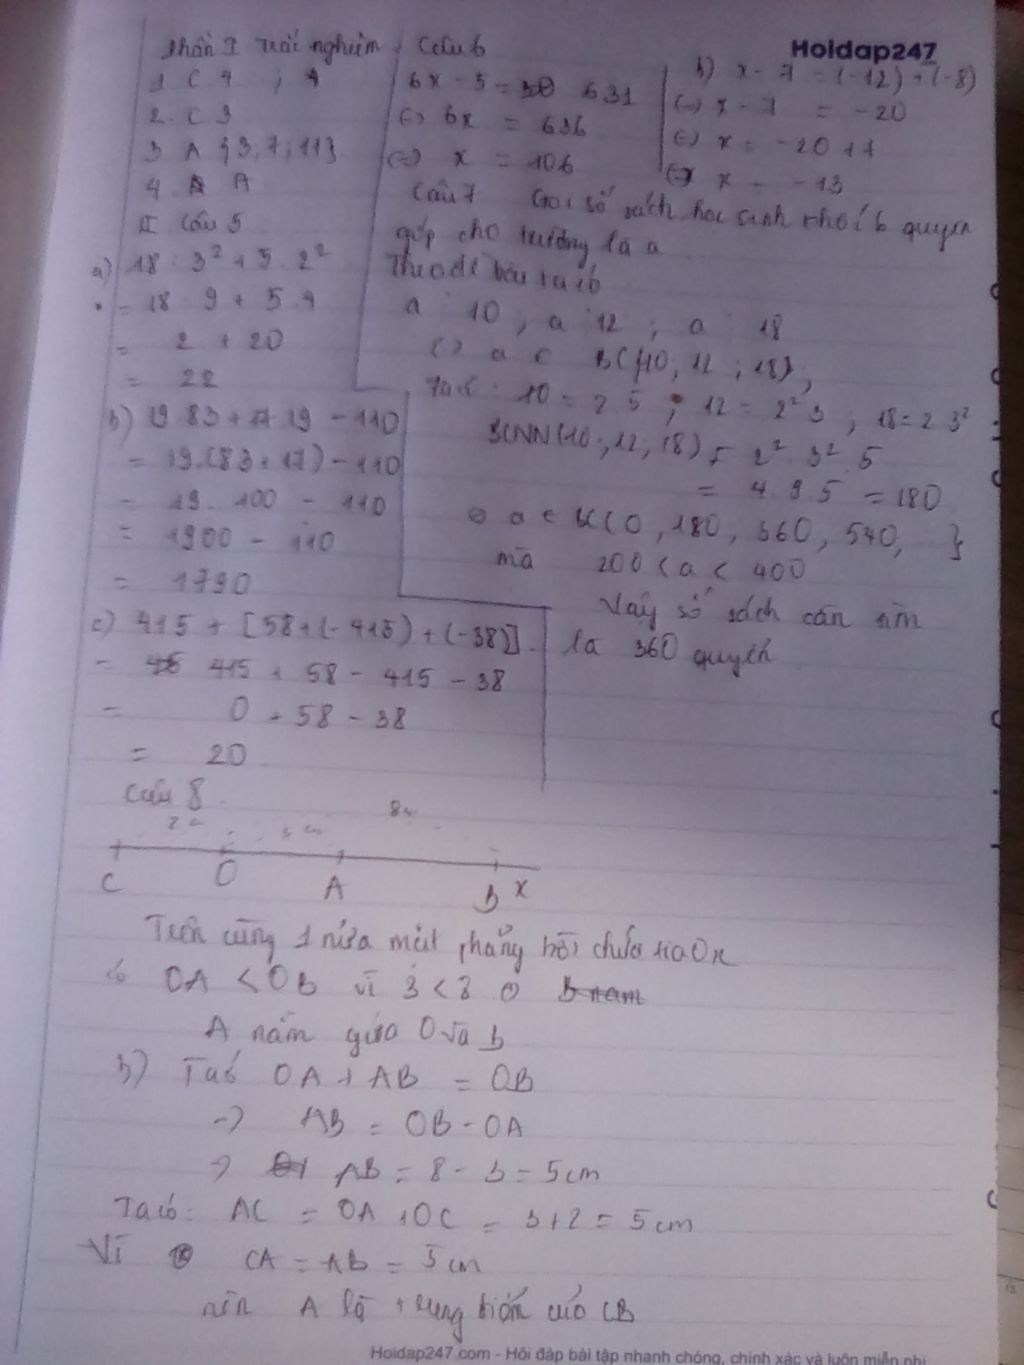 Hoidap247
Phần I Trắc nghiệm
1 C 4 ; 4
2. C 3
3 A {3; 7; 11}
4 A
II Câu 5
a) 18 : 3² + 5 . 2²
= 18 9 + 5 . 4
= 2 + 20
= 22
b) 19 83 + 17 19 - 110
= 19.(83 + 17) - 110
= 19. 100 - 110
= 1900 - 110
= 1790
c) 415 + [58 + (-415) + (-38)].
= 415 + 58 - 415 - 38
= 0 + 58 - 38
= 20
Câu 6
6x - 5 = 631
(=) 6x = 636
(=) x = 106
b) x - 7 = (-12) + (-8)
(=) x - 7 = -20
(=) x = -20 + 7
(=) x = -13
Câu 7 Gọi số sách học sinh khối 6 quyên
góp cho trường là a
Theo đề bài ta có
a 10 , a 12 ; a 18
(=) a ∈ BC(10; 12 ; 18),
Ta có : 10 = 2 5 ; 12 = 2² 3 , 18 = 2 3²
BCNN(10 ; 12, 18) = 2² 3² 5
= 4 . 9 5 = 180
a ∈ 0, 180, 360, 540, }
mà 200 < a < 400
Vậy số sách cần tìm
là 360 quyển
Câu 8
2 3 cm 8
C O A B x
Trên cùng 1 nửa mặt phẳng bờ chứa tia Ox
có OA < OB vì 3 < 8
A nằm giữa O và b
b) Ta có OA + AB = OB
=> AB = OB - OA
=> AB = 8 - 3 = 5 cm
Ta có: AC = OA + OC = 3 + 2 = 5 cm
Vì CA = AB = 5 cm
nên A là trung điểm của CB
Hoidap247.com - Hỏi đáp bài tập nhanh chóng, chính xác và luôn miễn phí!